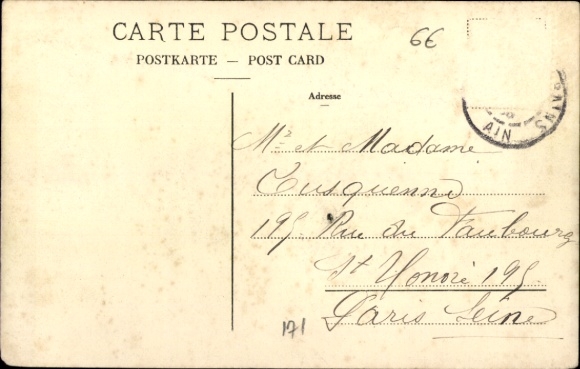 CARTE POSTALE
POSTKARTE — POST CARD
6€
AINS
AIN
Adresse
Mr et Madame
195 Rue du Faubourg
St Honoré 195
Paris Seine
171